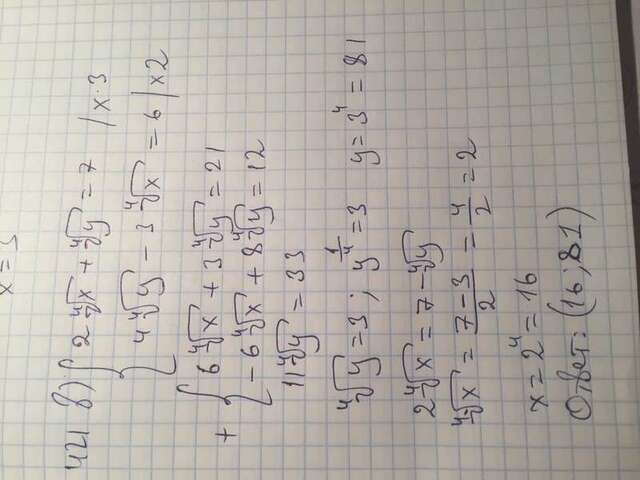 x = 3
421 в) { 2 ∜x + ∜y = 7 | x · 3
4 ∜y − 3 ∜x = 6 | x 2
+ { 6 ∜x + 3 ∜y = 21
− 6 ∜x + 8 ∜y = 12
11 ∜y = 33
∜y = 3 ; y^(1/4) = 3 y = 3^4 = 81
2 ∜x = 7 − ∜y
∜x = (7 − 3)/2 = 4/2 = 2
x = 2^4 = 16
Ответ: (16 ; 81)